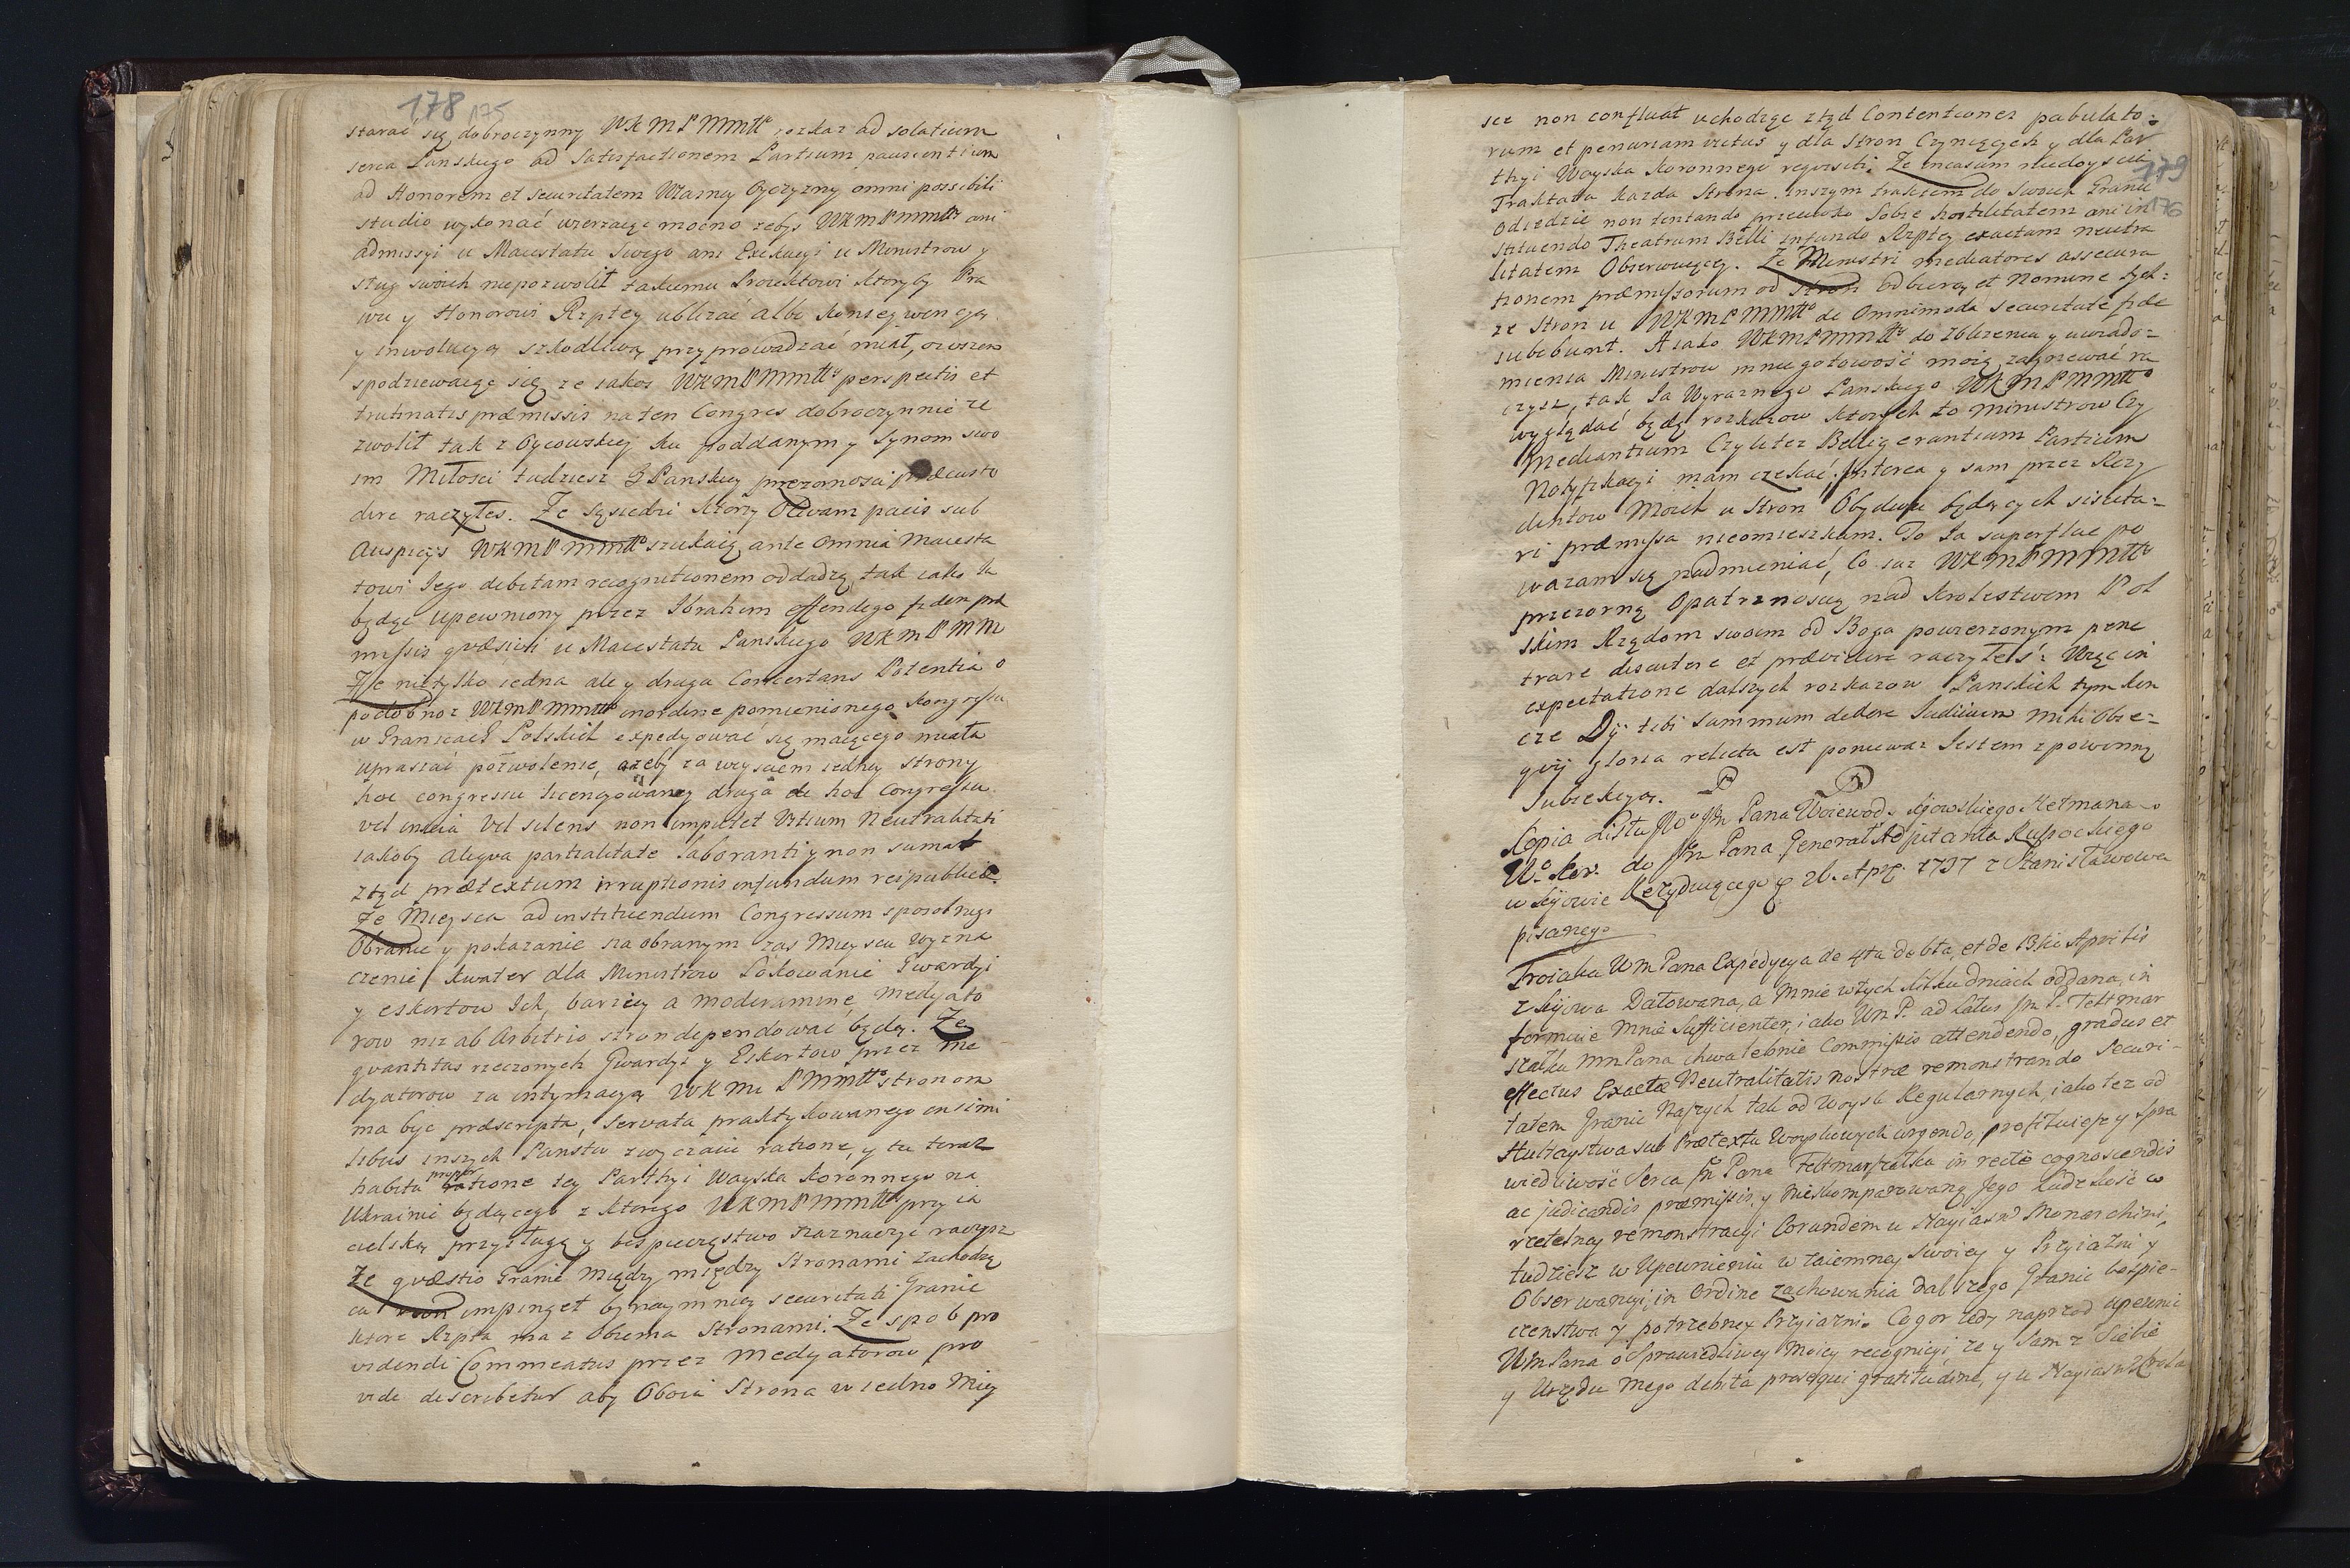 178 175
starać się dobroczynny WKMPMmtt° rozkaz ad solatium
serca Pańskiego ad Satisfactionem Partium paciscentium
ad Honorem et securitatem Własney Oyczyzny omni possibili
studio wykonać wierzaiąc mocno żebyś WKMPMmtt° ani
admissyi u Maiestatu Swego ani Exekucyi u Ministrow y
sług swoich niepozwolił takiemu Proiektowi ktoryby Pra
wu y Honorowi Rzptey ubliżać albo konseqwencyą
y inwolucyą szkodliwą przyprowadzać miał, owszem
spodziewaiąc się że iakoś WKMPMmtt° perspectis et
trutinatis præmissis na ten Congres dobroczynnie ze
zwolił tak z Oycowskiey ku poddanym y Synom swo
im Miłości tudziesz z Panskiey przezornosci præcusto
dire raczyłeś. Że Sąsiedzi ktorzy Olivam pacis sub
Auspicijs WKMPMmtt° szukaią ante Omnia Maiesta
towi Jego debitam recognitionem oddadzą tak iako Ja
będąc upewniony przez Ibrahim effendego fidem præ
missis qvæsivi u Maiestatu Panskiego WKMPMM
Że nietylko iedna ale y druga Concertans Potentia o
podobnoż WKMPMmtt° inordine pomienionego Kongressu
w Granicach Polskich expedyować się maiącego miała
upraszać pozwolenie, ażeby za wysciem iedney strony
hoc congressu licencyowaney druga de hoc Congressu
vel inscia vel silens non imputet Vitium Neutralitati
iakoby aliqva partialitate laboranti y non sumat
ztąd prætextum irruptionis in fundum reipublicæ.
Że Mieysca ad instituendum Congressum sposobnego
Obranie y pokazanie na obranym zas Mieyscu wyzna
czenie Kwater dla Ministrow Lokowanie Gwardyi
y eskortow Ich, barziey a moderamine Medyato
row niż ab Arbitrio stron dependować będą. Że
qvantitas rzeczonych Gwardyi y Eskortow przez Me
dyatorow za intymacyą WKMci PMmtt° stronom
ma byc præscripta, servata praktykowanego in simi
libus inszych Panstw zwyczaiu ratione, y tu teraz
habita proper ratione tey Parthyi Woyska Koronnego na
Ukrainie będącego z ktorego WKMPMmtt° przyia
cielską przysługę y bespieczęstwo naznaczyć raczysz
Że qvæstio Granic Między między Stronami zachodzą
ca non impinget bynaymniey securitati Granic
ktore Rzpta ma z Obiema Stronami. Że sposob pro
videndi Commeatus przez Medyatorow pro
vide describetur aby Oboia Strona w iedno Miey
179
176
sce non confluat uchodząc ztąd Contentiones pabulato=
rum et penuriam victus y dla Stron Czyniących y dla Par
thyi Woyska Koronnego reqvisiti. Że incasum niedoyscia
Traktatu każda Strona inszym traktem do Swoich Granic
odiedzie non tentando przeciwko Sobie hostilitatem ani in
stituendo Theatrum Belli in fundo Rzptey exactam neutra
litatem Obserwuiącey. Że Ministri mediatores assecura
tionem præmissorum od stron odbiorą et Nomine tych=
że Stron u WKMPMmtt° de Omnimoda securitate fide
iubebunt. A iako WKMPMmtt° do zbliżenia y uwiado=
mienia Ministrow mnie gotowość moią zagrzewać ra
czysz, tak Ja Wyraznego Panskiego WKMPMmtt°
wyglądać będę rozkazow ktorych to Ministrow Czy
Mediantium Czyli też Belligerantium Partium
Notyfikacyi mam czekać; Interea y sam przez Rezy
dentow Moich u Stron Obydwu będących siscita=
ri præmissa nieomieszkam. To Ja superflue po
ważam się nadmieniać, Co iuż WKMPMmtt°
przezorną Opatrznoscią nad Krolestwem Pol
skim Rządom swoim od Boga powierzonym pene
trare discutere et prævidere raczyłeś: Więc in
expectatione dalszych rozkazow Panskich tym kon
czę Dij tibi Summum dedere Iudicium mihi Obse=
qvij gloria relicta est poniewaz Iestem z powinną
Subiekcyą.
Kopia Listu JWo Jm Pana Woiewody Kijowskiego Hetmana
Wo Kor. do Jm Pana General Adjutanta Rupockiego
w Kijowie Rezyduiącego 26 Apr: 1737 z Stanisławowa
pisanego
Troiaka Wm Pana Expedycya de 4ta debta, et de 13tii Aprilis
z Kijowa Datowana, a Mnie wtych kilku dniach oddana, in
formuie Mnie Sufficienter, iako Wm P. ad latus Jm P. Feltmar
szałka MmPana chwalebnie Commissis attendendo, gradus et
effectus Exactæ Neutralitatis nostræ remonstrando Securi=
tatem Granic Naszych tak od Woysk Regularnych, iako też od
Hultaystwa sub Prætextu Woyskowych urgendo, profituiesz y spra
wiedliwość Serca Jm Pana Feltmarszałka in recte cognoscendis
ac judicandis præmissis, y nieskomparowaną Jego Ludzkość w
rzetelney remonstracyi Eorundem u Nayiasn: Monarchini,
tudziesz w Upewnieniu wzaiemney Swoiey y Przyiazni y
Obserwancyi, in Ordine zachowania dalszego Granic bespie-
czenstwa y potrzebney Przyiazni. Czegoż tedy naprzod upewnić
WmPana o Sprawiedliwey Moiey recognicyi że y Sam z Siebie
y Urzędu Mego debita proseqvi gratitudine, y u Nayiasn: Krola